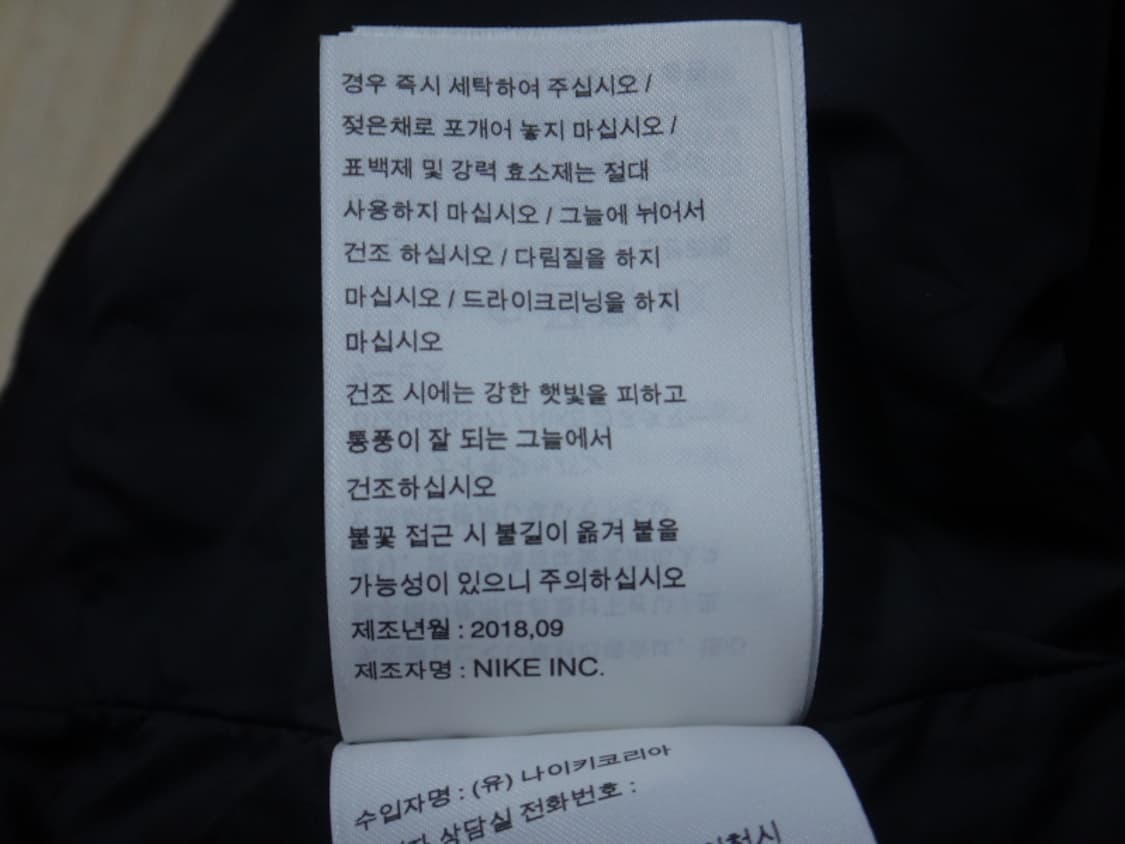 경우 즉시 세탁하여 주십시오 /
젖은채로 포개어 놓지 마십시오 /
표백제 및 강력 효소제는 절대
사용하지 마십시오 / 그늘에 뉘어서
건조 하십시오 / 다림질을 하지
마십시오 / 드라이크리닝을 하지
마십시오
건조 시에는 강한 햇빛을 피하고
통풍이 잘 되는 그늘에서
건조하십시오
불꽃 접근 시 불길이 옮겨 붙을
가능성이 있으니 주의하십시오
제조년월 : 2018,09
제조자명 : NIKE INC.
수입자명 : (유) 나이키코리아
상담실 전화번호 :